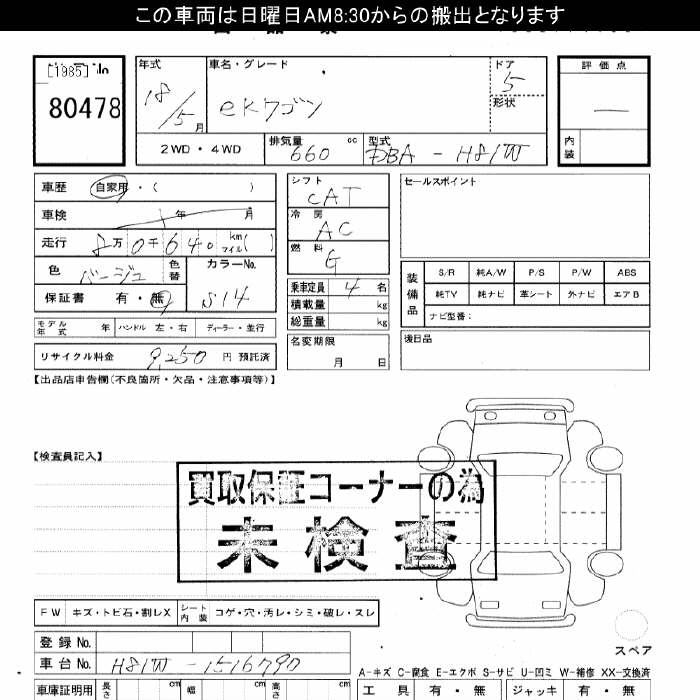 この車両は日曜日AM8:30からの搬出となります
[1985] No
80478
年式 車名・グレード ドア 評価点
18/5月 eKワゴン 5 —
形状
2WD・4WD 排気量 660 cc 型式 DBA - H81W 内装
車歴 自家用・( )
車検 年 月
走行 8万0千640 km マイル( )
色 ベージュ 色替 カラーNo.
保証書 有・無 S14
モデル年式 年 ハンドル 左・右 ディーラー・並行
リサイクル料金 9,250 円 預託済
シフト CAT
冷房 AC
燃料 G
乗車定員 4 名
積載量 kg
総重量 kg
名変期限
月 日
セールスポイント
装備品 S/R 純A/W P/S P/W ABS
純TV 純ナビ 革シート 外ナビ エアB
ナビ型番:
後日品
【出品店申告欄(不良箇所・欠品・注意事項等)】
【検査員記入】
買取保証コーナーの為
未検査
FW キズ・トビ石・割レX シート内装 コゲ・穴・汚レ・シミ・破レ・スレ
登録No.
車台No. H81W-1516790
スペア
A-キズ C-腐食 E-エクボ S-サビ U-凹ミ W-補修 XX-交換済
車庫証明用 長さ cm 幅 cm 高さ cm 工具 有・無 ジャッキ 有・無